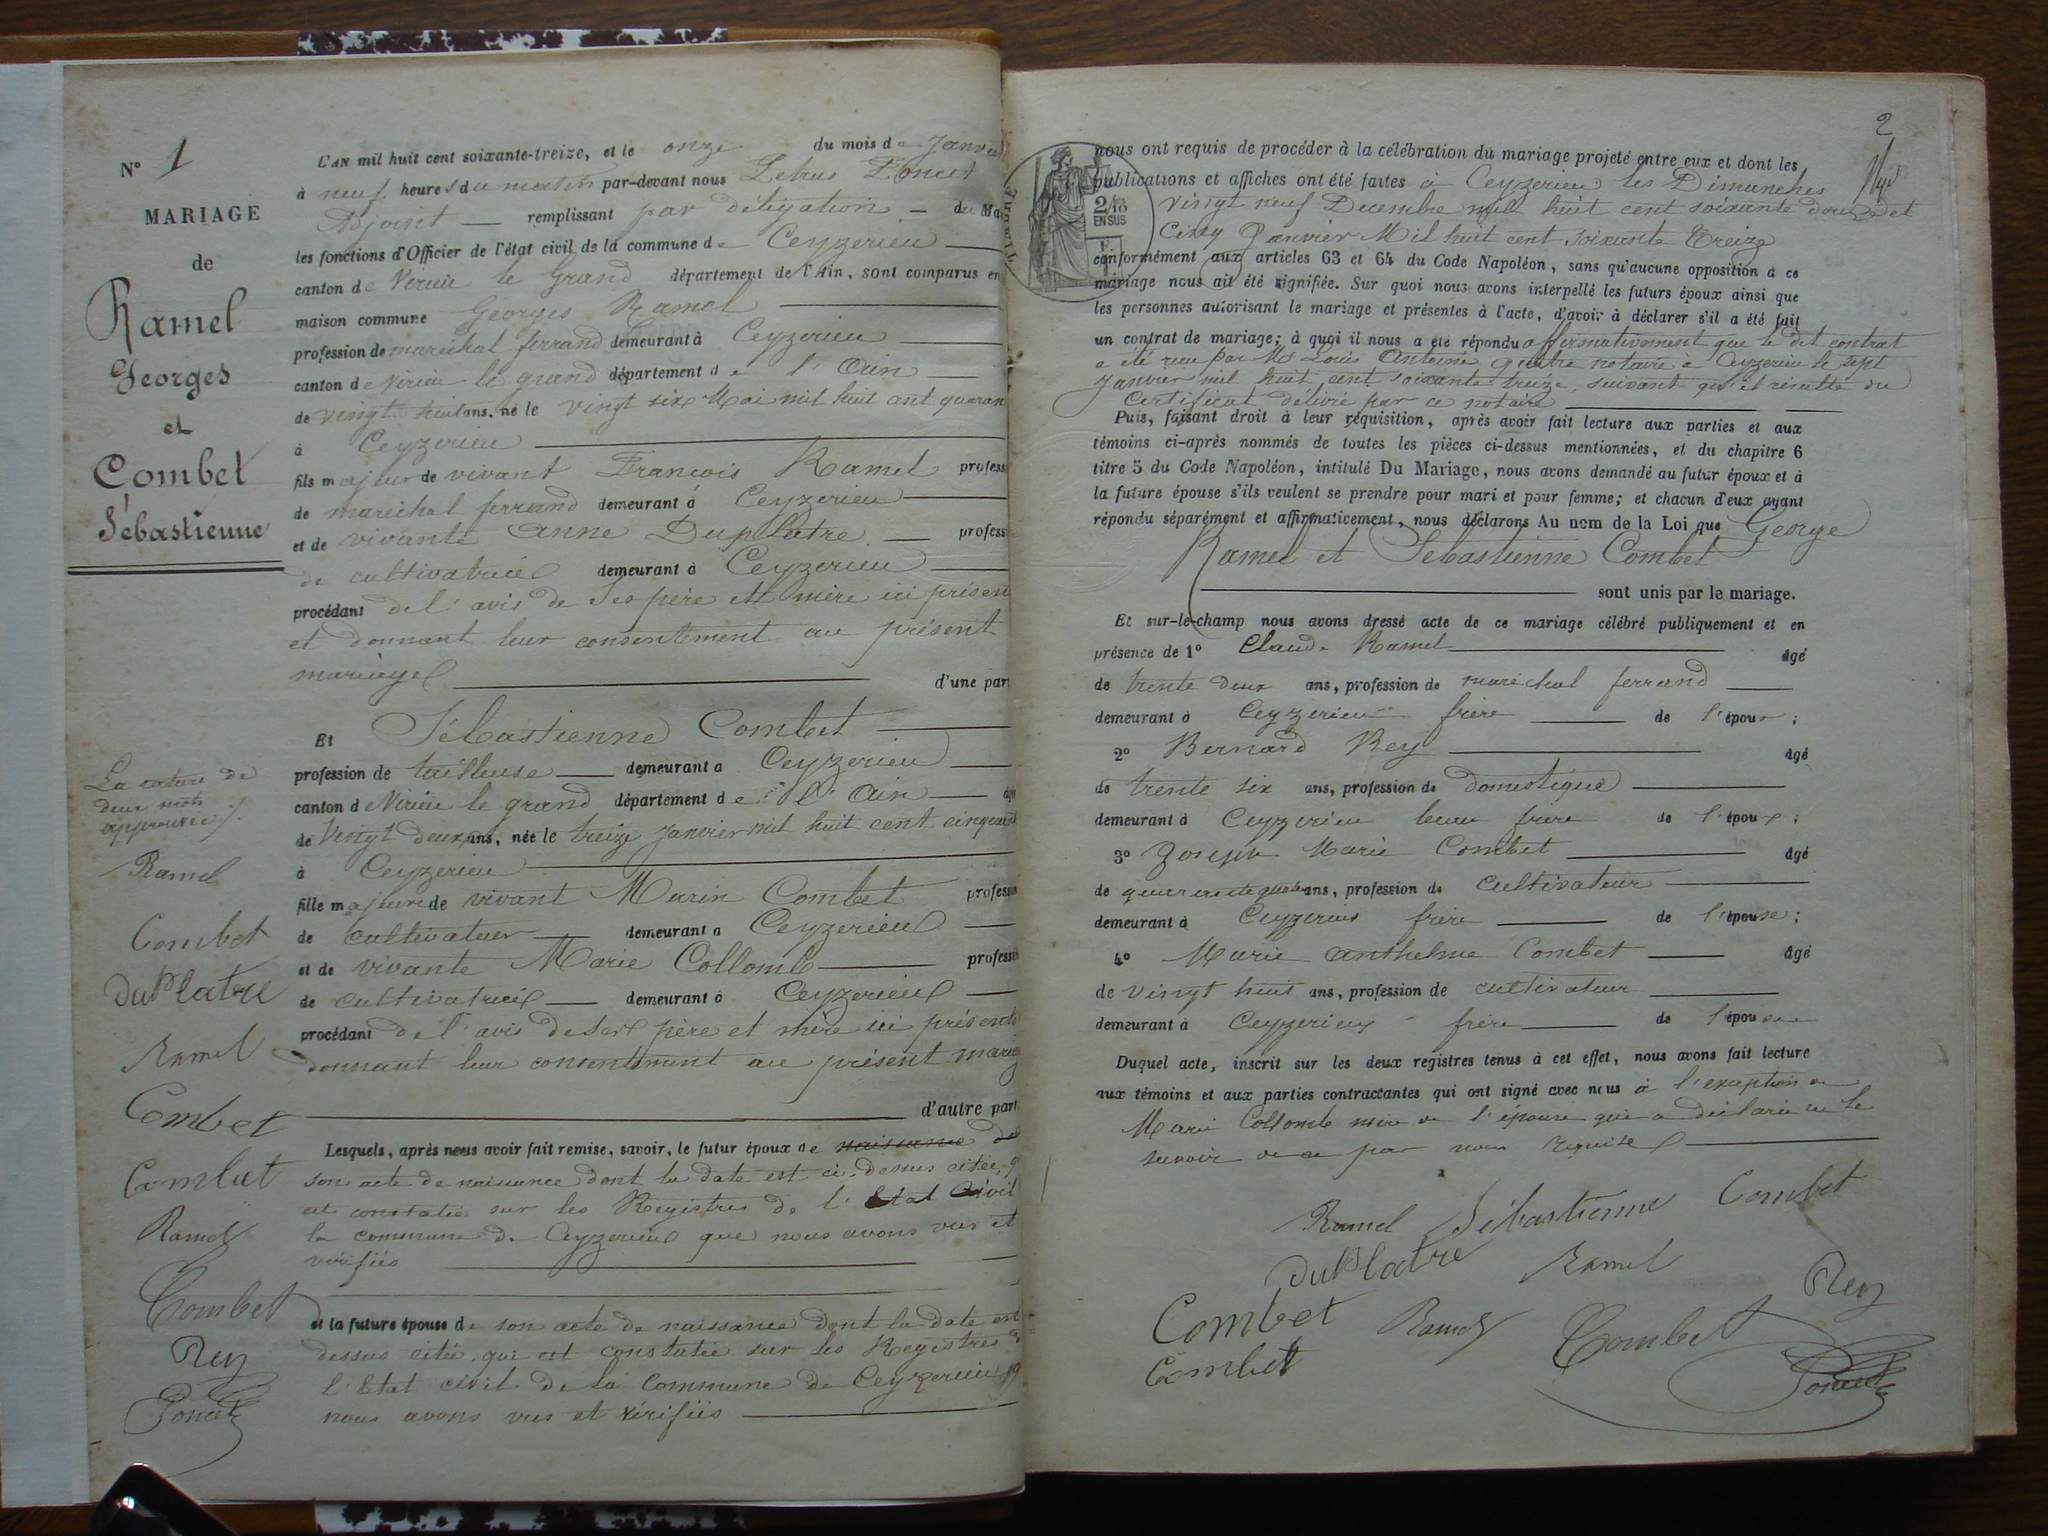 N° 1
MARIAGE
de
Ramel
Georges
et
Combet
Sébastienne
La rature de
deux mots
approuvée
Ramel
Combet
DuPlatre
Ramel
Combet
Combet
Ramel
Combet
Rey
Poncet
L'AN mil huit cent soixante-treize, et le onze du mois de Janvier
à neuf heures du matin par-devant nous Petrus Poncet
Adjoint — remplissant par délégation — du Ma
les fonctions d'Officier de l'état civil de la commune de Ceyzerieu
canton de Virieu le Grand département de l'Ain, sont comparus en
maison commune Georges Ramel
profession de maréchal ferrand demeurant à Ceyzerieu
canton de Virieu le grand département de l'Ain
de vingt huit ans, né le vingt six Mai mil huit cent quaran
à Ceyzerieu
fils majeur de vivant François Ramel profess
de maréchal ferrand demeurant à Ceyzerieu
et de vivante Anne Duplatre — profess
de cultivatrice demeurant à Ceyzerieu
procédant de l'avis de Ses père et mère ici présen
et donnant leur consentement au présent
mariage d'une part
Et Sébastienne Combet
profession de tailleuse — demeurant à Ceyzerieu
canton de Virieu le grand département de l'Ain
de Vingt deux ans, née le treize janvier mil huit cent cinquan
à Ceyzerieu
fille majeure de vivant Marin Combet profession
de cultivateur — demeurant à Ceyzerieu
et de vivante Marie Collomb — profession
de cultivatrice — demeurant à Ceyzerieu
procédant de l'avis de ses père et mère ici présents
donnant leur consentement au présent mariag
d'autre part
Lesquels, après nous avoir fait remise, savoir, le futur époux de naissance de
son acte de naissance dont la date est ci-dessus citée, q
est constatée sur les Registres de l'Etat Civil
la commune de Ceyzerieu que nous avons vus et
vérifiés
et la future épouse de son acte de naissance dont la date est
dessus citée, qui est constatée sur les Registres d
l'Etat civil de la Commune de Ceyzerieu
nous avons vus et vérifiés
2
2/10
EN SUS
nous ont requis de procéder à la célébration du mariage projeté entre eux et dont les
publications et affiches ont été faites à Ceyzerieu les Dimanches
vingt neuf Decembre mil huit cent soixante douze et
cinq Janvier Mil huit cent soixante Treize
conformément aux articles 63 et 64 du Code Napoléon, sans qu'aucune opposition à ce
mariage nous ait été signifiée. Sur quoi nous avons interpellé les futurs époux ainsi que
les personnes autorisant le mariage et présentes à l'acte, d'avoir à déclarer s'il a été fait
un contrat de mariage; à quoi il nous a été répondu affirmativement que le dit contrat
a été reçu par Me Louis Antoine notaire à Ceyzerieu le sept
Janvier mil huit cent soixante treize, suivant qu'il résulte du
Certificat délivré par ce notaire
Puis, faisant droit à leur réquisition, après avoir fait lecture aux parties et aux
témoins ci-après nommés de toutes les pièces ci-dessus mentionnées, et du chapitre 6
titre 5 du Code Napoléon, intitulé Du Mariage, nous avons demandé au futur époux et à
la future épouse s'ils veulent se prendre pour mari et pour femme; et chacun d'eux ayant
répondu séparément et affirmativement, nous déclarons Au nom de la Loi que George
Ramel et Sébastienne Combet
sont unis par le mariage.
Et sur-le-champ nous avons dressé acte de ce mariage célébré publiquement et en
présence de 1° Claude Ramel âgé
de trente deux ans, profession de maréchal ferrand
demeurant à Ceyzerieu frère — de l'époux;
2° Bernard Rey âgé
de trente six ans, profession de Domestique
demeurant à Ceyzerieu beau frère de l'époux;
3° Joseph Marie Combet âgé
de quarante quatre ans, profession de cultivateur
demeurant à Ceyzerieu frère — de l'épouse;
4° Marie Anthelme Combet — âgé
de vingt huit ans, profession de cultivateur
demeurant à Ceyzerieu frère — de l'épouse
Duquel acte, inscrit sur les deux registres tenus à cet effet, nous avons fait lecture
aux témoins et aux parties contractantes qui ont signé avec nous à l'exception de
Marie Collomb mère de l'épouse qui a déclaré ne le
savoir de ce par nous requise
Ramel Sébastienne Combet
DuPlatre Ramel Rey
Combet Ramel Combet
Combet Poncet